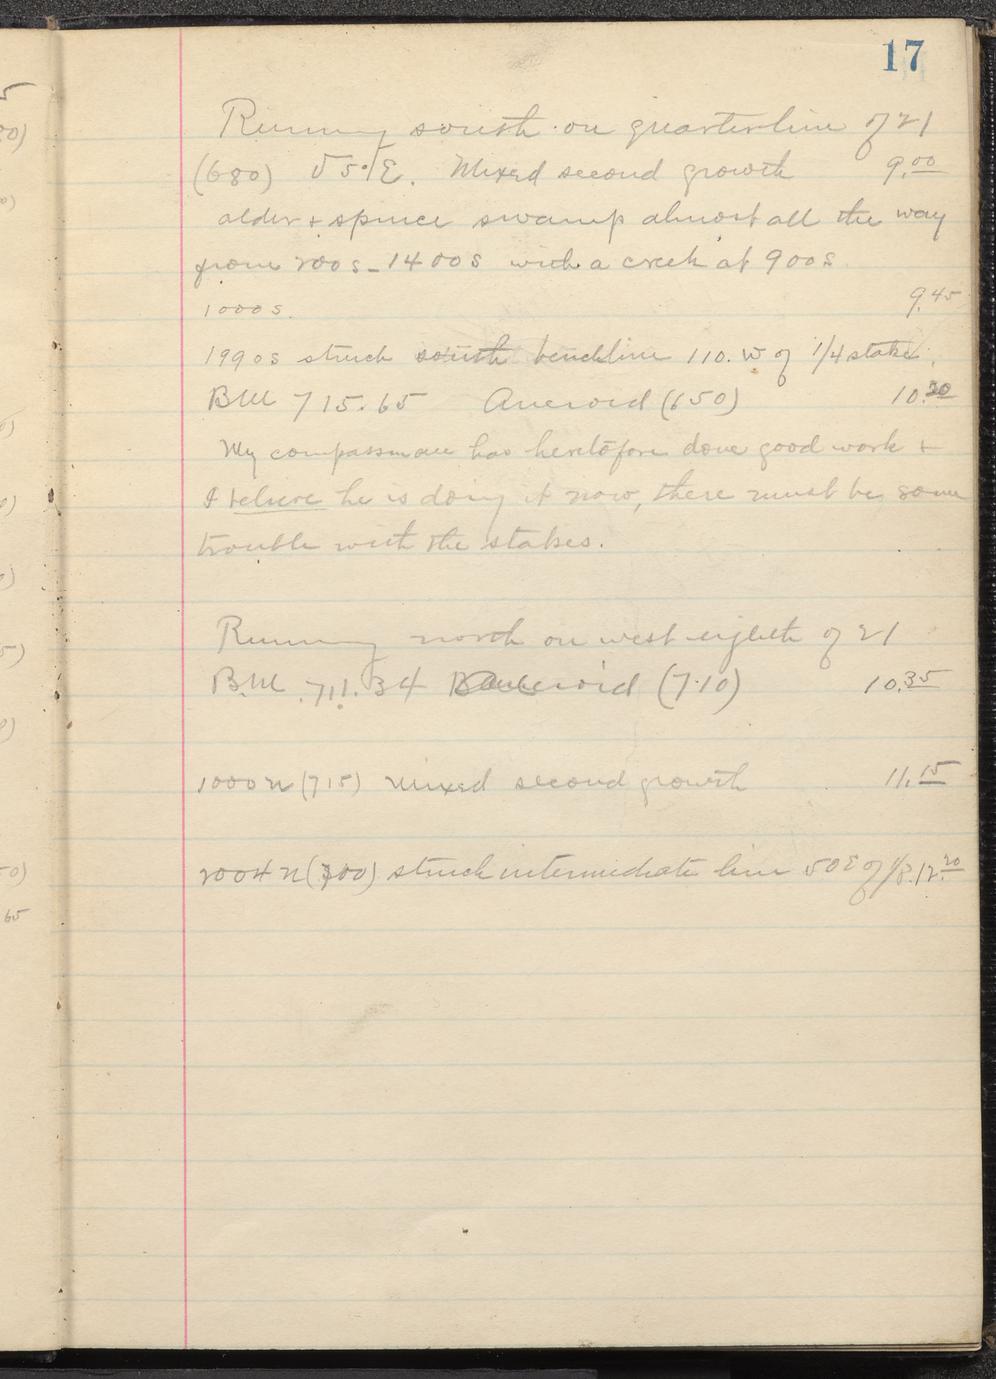 17
Running south on quarterline of 21
(680) V 5°/E. Mixed second growth 9.00
alder + spruce swamp almost all the way
from 200 s - 1400 s with a creek at 900 s.
1000 s. 9.45
1990 s struck south benchline 110. W of 1/4 stake.
BM 715.65 Aneroid (650) 10.20
My compassman has heretofore done good work +
I believe he is doing it now, there must be some
trouble with the stakes.
Running north on west eighth of 21
B.M. 711.34 Aneroid (710) 10.35
1000 n (715) Mixed second growth 11.15
2004 n (700) struck intermediate line 50 E of 1/8. 12.20